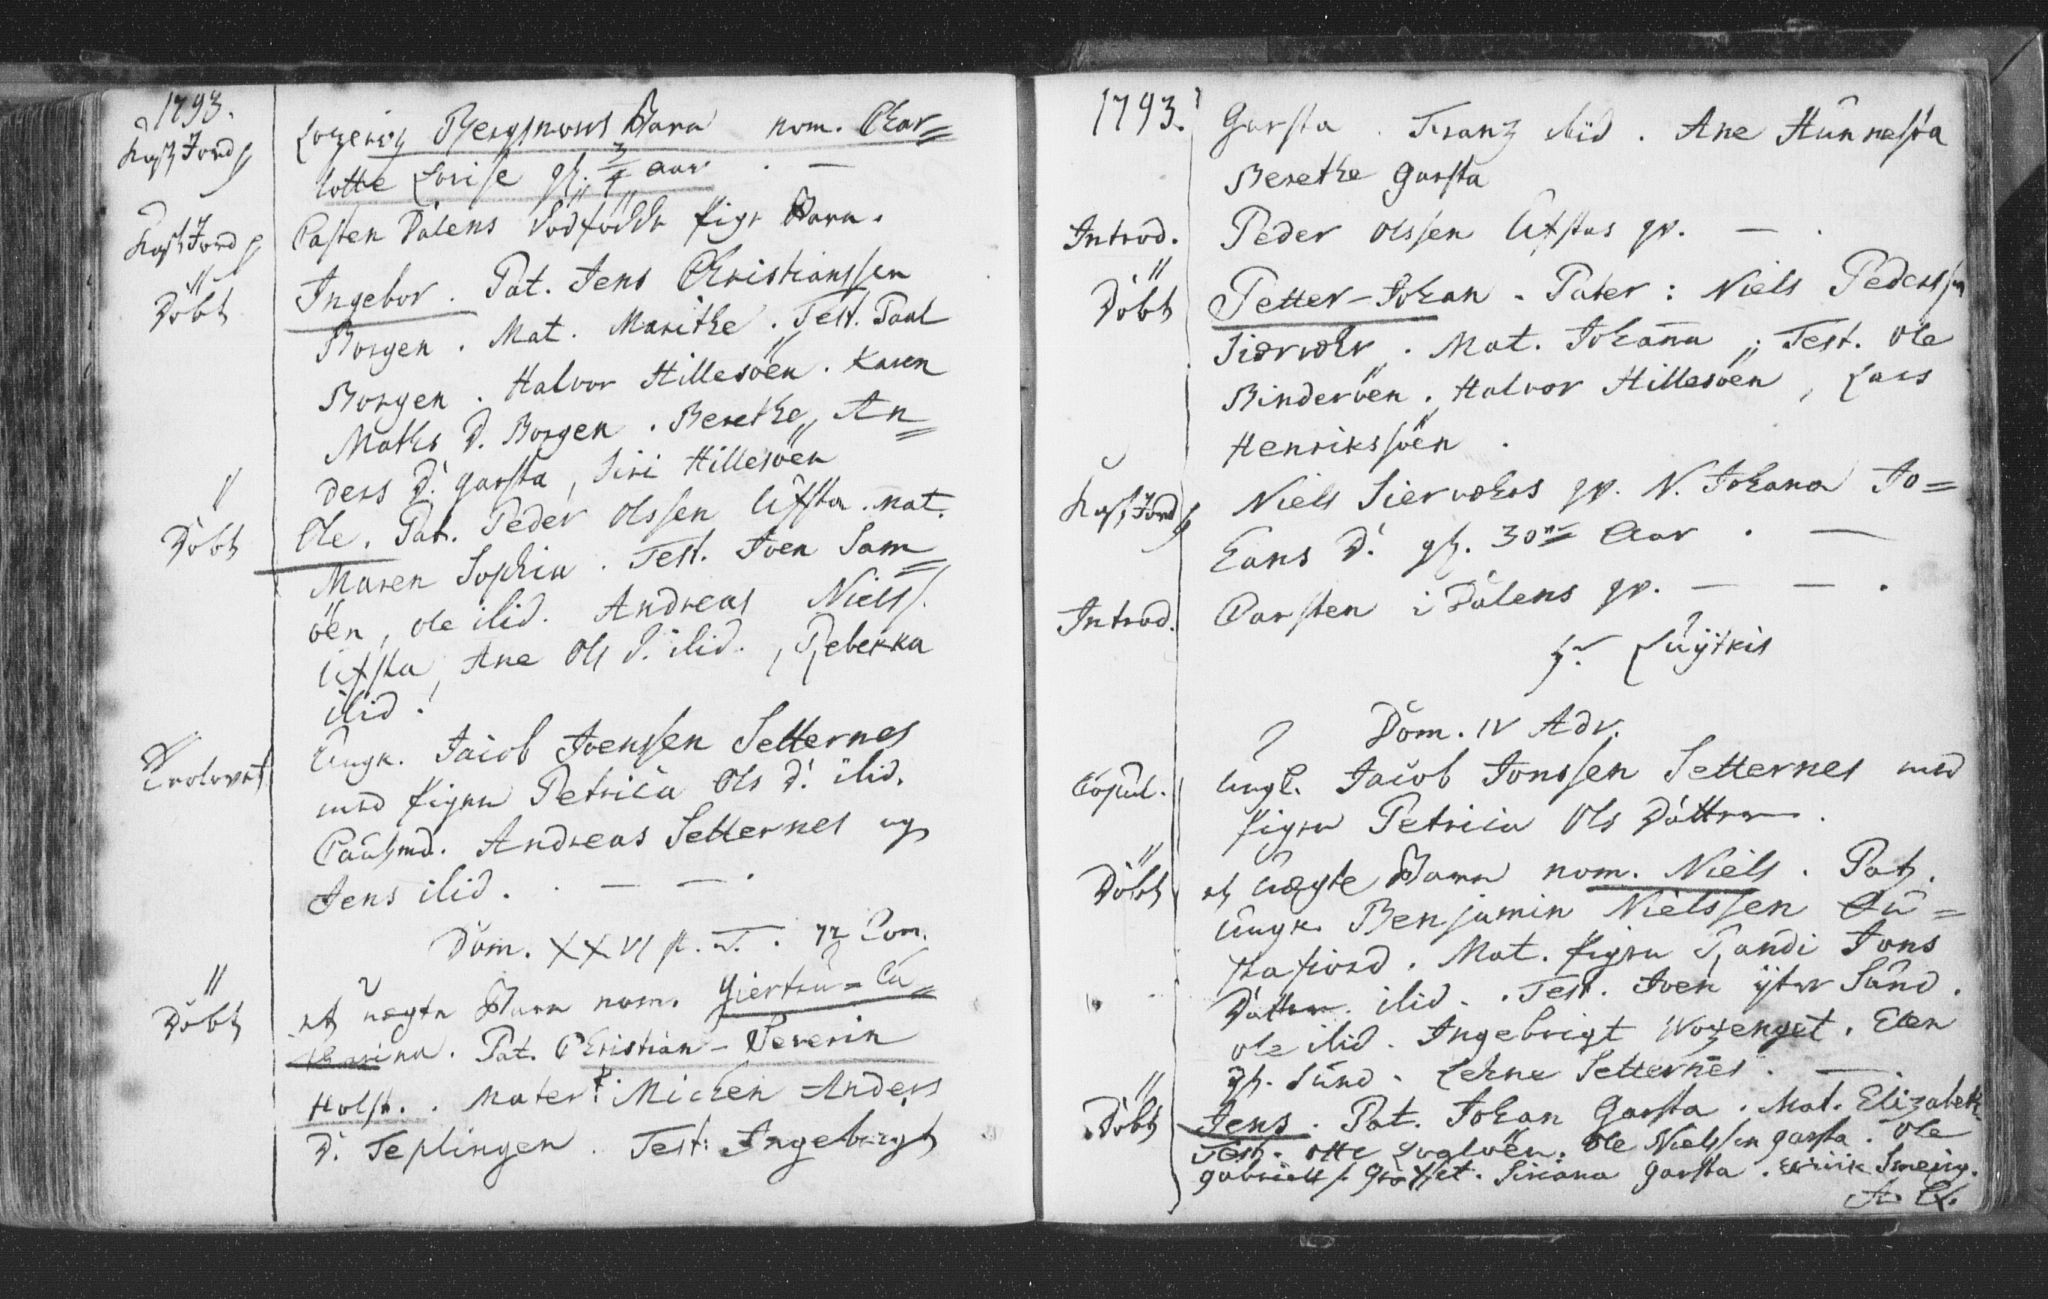 1793.
Kast Jord p. Lorentz Bergmans Barn nom. Char=
lotte Lovise gl. 3/4 aar . —
Kast Jord p. Casten Dalens dödfödde Pige Barn.
Döbt Ingebor. Pat. Jens Christianssen
Borgen. Mat. Marithe. Test. Paul
Borgen. Halvor Hillesöen. Karen
Maths D. Borgen. Berethe An=
ders D. Garsta, Siri Hillesöen
Döbt Ole. Pat. Peder Olssen Ufsta. Mat.
Maren Sophia. Test. Joen Sam=
öen, Ole ibid. Andreas Niels S.
Ufsta, Ane Ols D. ibid., Rebekka
ibid.
Trolovet Ungk. Jacob Joenssen Setternes
med Pigen Petricia Ols D. ibid.
Caut: md. Andreas Setternes og
Jens ibid. . — — .
Dom. XXVI p. T. 72 Com.
Döbt et uægte Barn nom. Giertru-Ca=
tharina. Pat. Christian-Severin
Holst. Mater: Michen Anders
D. Teplingen. Test: Ingebrigt
1793.
Garsta. Franz ibid. Ane Hunnesöa
Berethe Garsta
Introd. Peder Olssen Ufstas qv. — .
Döbt Petter-Johan. Pater: Niels Pederssen
Siervolr. Mat. Johanna. Test. Ole
Binderöen. Halvor Hillesöen, Lars
Henrikssöen.
Kast Jord p. Niels Siervolrs qv. N. Johana Jo=
hans D. gl. 30 Aar . —
Introd. Carsten i Dalens qv. — — .
Dom. IV Adv.
Copul. Ungk. Jacob Jonssen Setternes med
Pigen Petricia Ols Datter.
Döbt et Uægte Barn nom. Niels. Pat.
Ungk. Benjamin Nielssen
fiord. Mat. Pigen Randi Jons
Datter ibid. Test. Joen ytre Sund.
Ole ibid. Ingebrigt Woxenget. Elen
Sund. Lehne Setternes. —
Döbt Jens. Pat. Johan Garsta. Mat. Elizabeth
Test. Otte Ole Nielssen Garsta. Ole
Gabriels S. Siriana Garsta.